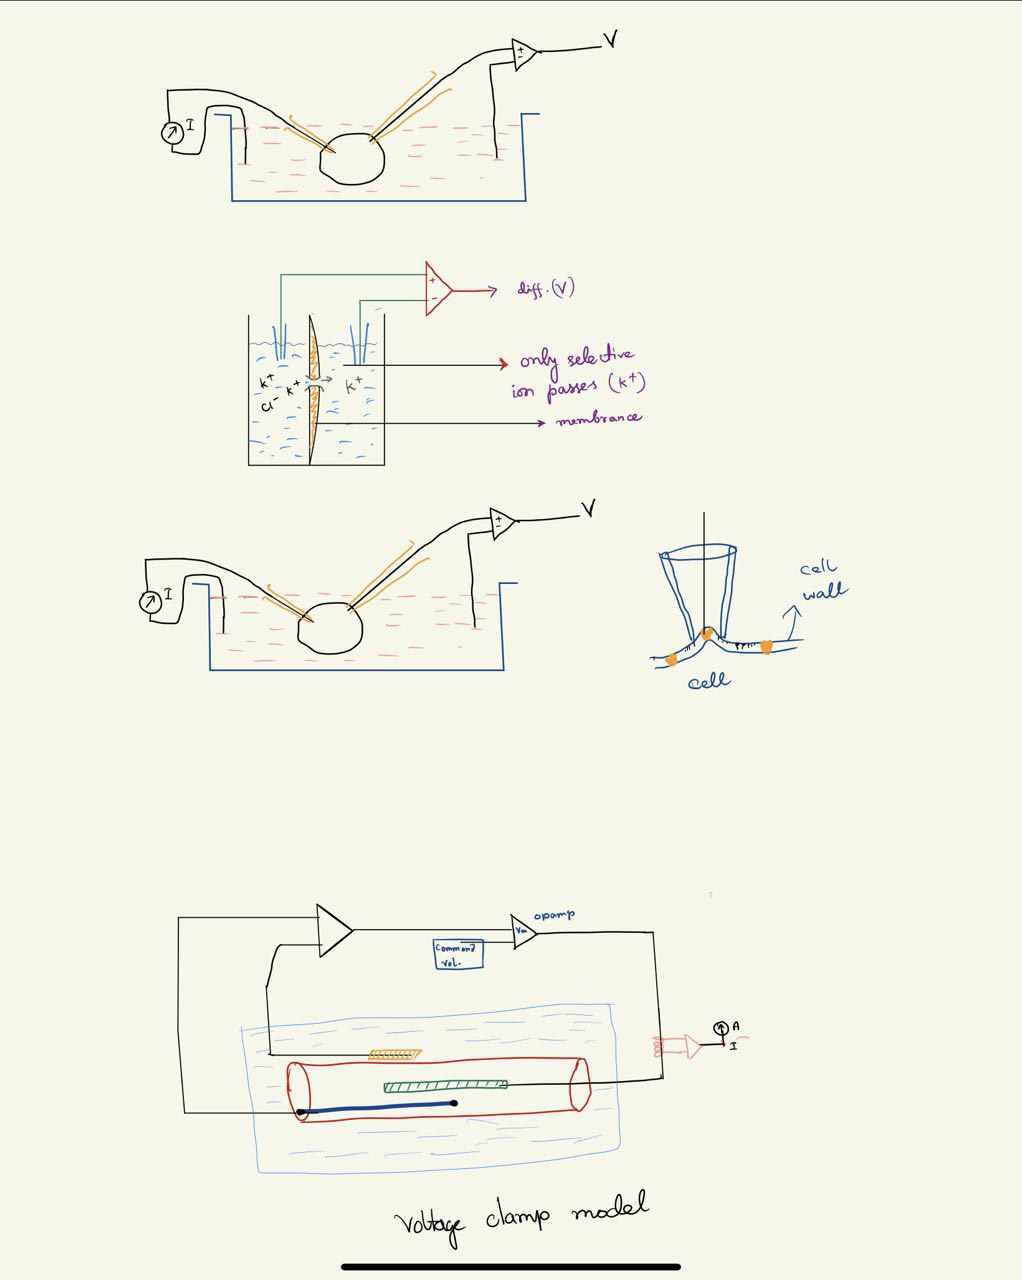 V
I
+
-
+
-
diff.(V)
only selective
ion passes (K+)
K+
Cl- K+ → K+
membrance
V
I
+
-
cell
wall
cell
opamp
Vm
Command
vol.
A
I
Voltage clamp model